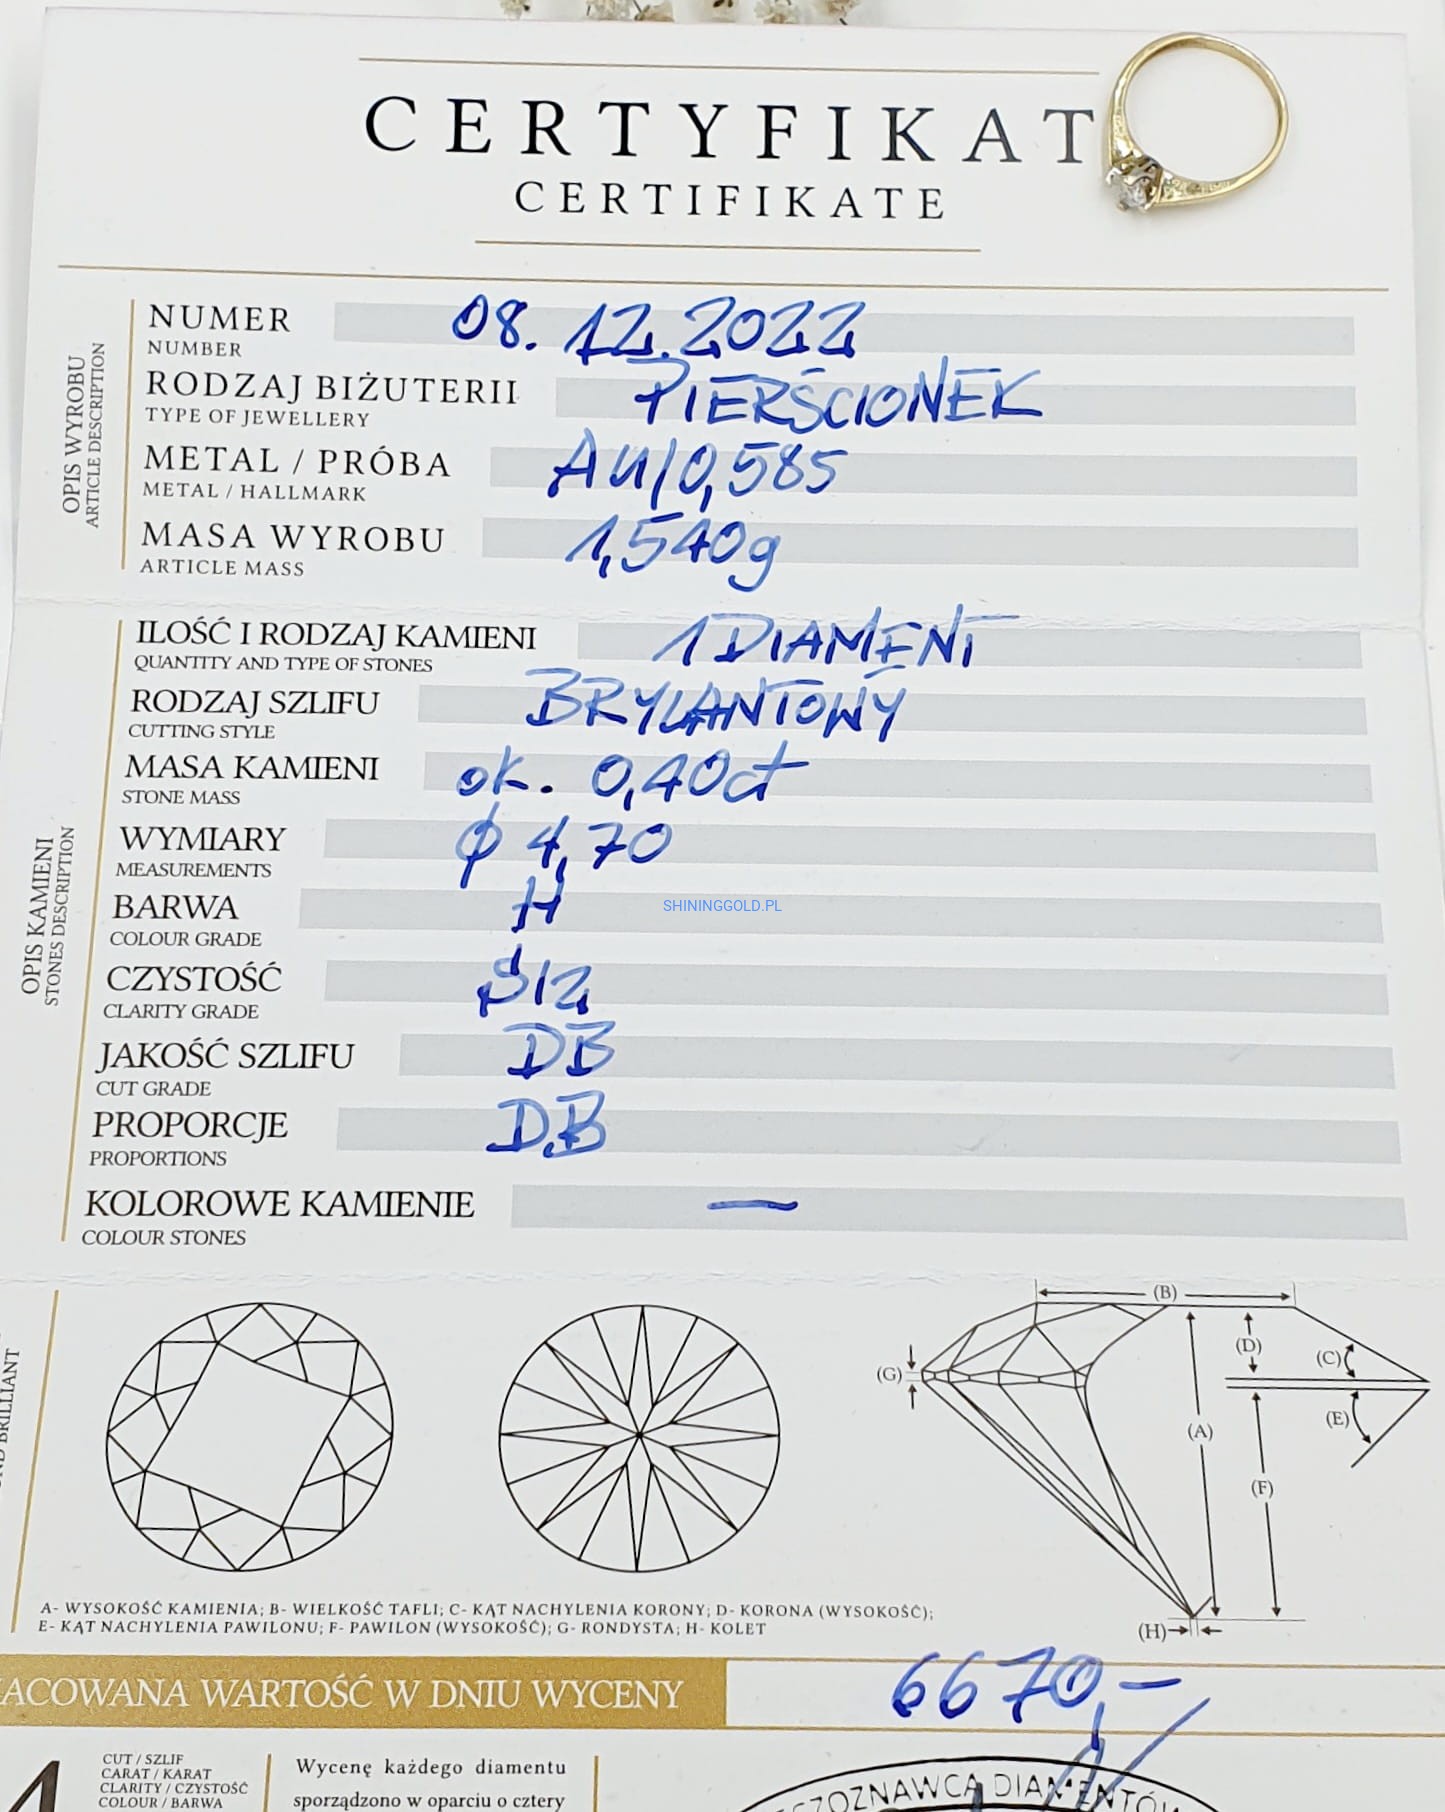 CERTYFIKAT
CERTIFIKATE
OPIS WYROBU
ARTICLE DESCRIPTION
NUMER 08.12.2022
NUMBER
RODZAJ BIŻUTERII PIERŚCIONEK
TYPE OF JEWELLERY
METAL / PRÓBA AU/0,585
METAL / HALLMARK
MASA WYROBU 1,540g
ARTICLE MASS
OPIS KAMIENI
STONES DESCRIPTION
ILOŚĆ I RODZAJ KAMIENI 1 DIAMENT
QUANTITY AND TYPE OF STONES
RODZAJ SZLIFU BRYLANTOWY
CUTTING STYLE
MASA KAMIENI ok. 0,40ct
STONE MASS
WYMIARY ϕ 4,70
MEASUREMENTS
BARWA H
COLOUR GRADE
SHININGGOLD.PL
CZYSTOŚĆ SI2
CLARITY GRADE
JAKOŚĆ SZLIFU DB
CUT GRADE
PROPORCJE DB
PROPORTIONS
KOLOROWE KAMIENIE —
COLOUR STONES
BRILLIANT
(B)
(D)
(G)
(C)
(E)
(A)
(F)
(H)
A- WYSOKOŚĆ KAMIENIA; B- WIELKOŚĆ TAFLI; C- KĄT NACHYLENIA KORONY; D- KORONA (WYSOKOŚĆ);
E- KĄT NACHYLENIA PAWILONU; F- PAWILON (WYSOKOŚĆ); G- RONDYSTA; H- KOLET
ACOWANA WARTOŚĆ W DNIU WYCENY 6670,-
4
CUT / SZLIF
CARAT / KARAT
CLARITY / CZYSTOŚĆ
COLOUR / BARWA
Wycenę każdego diamentu
sporządzono w oparciu o cztery
ZOZNAWCA DIAMENTÓW